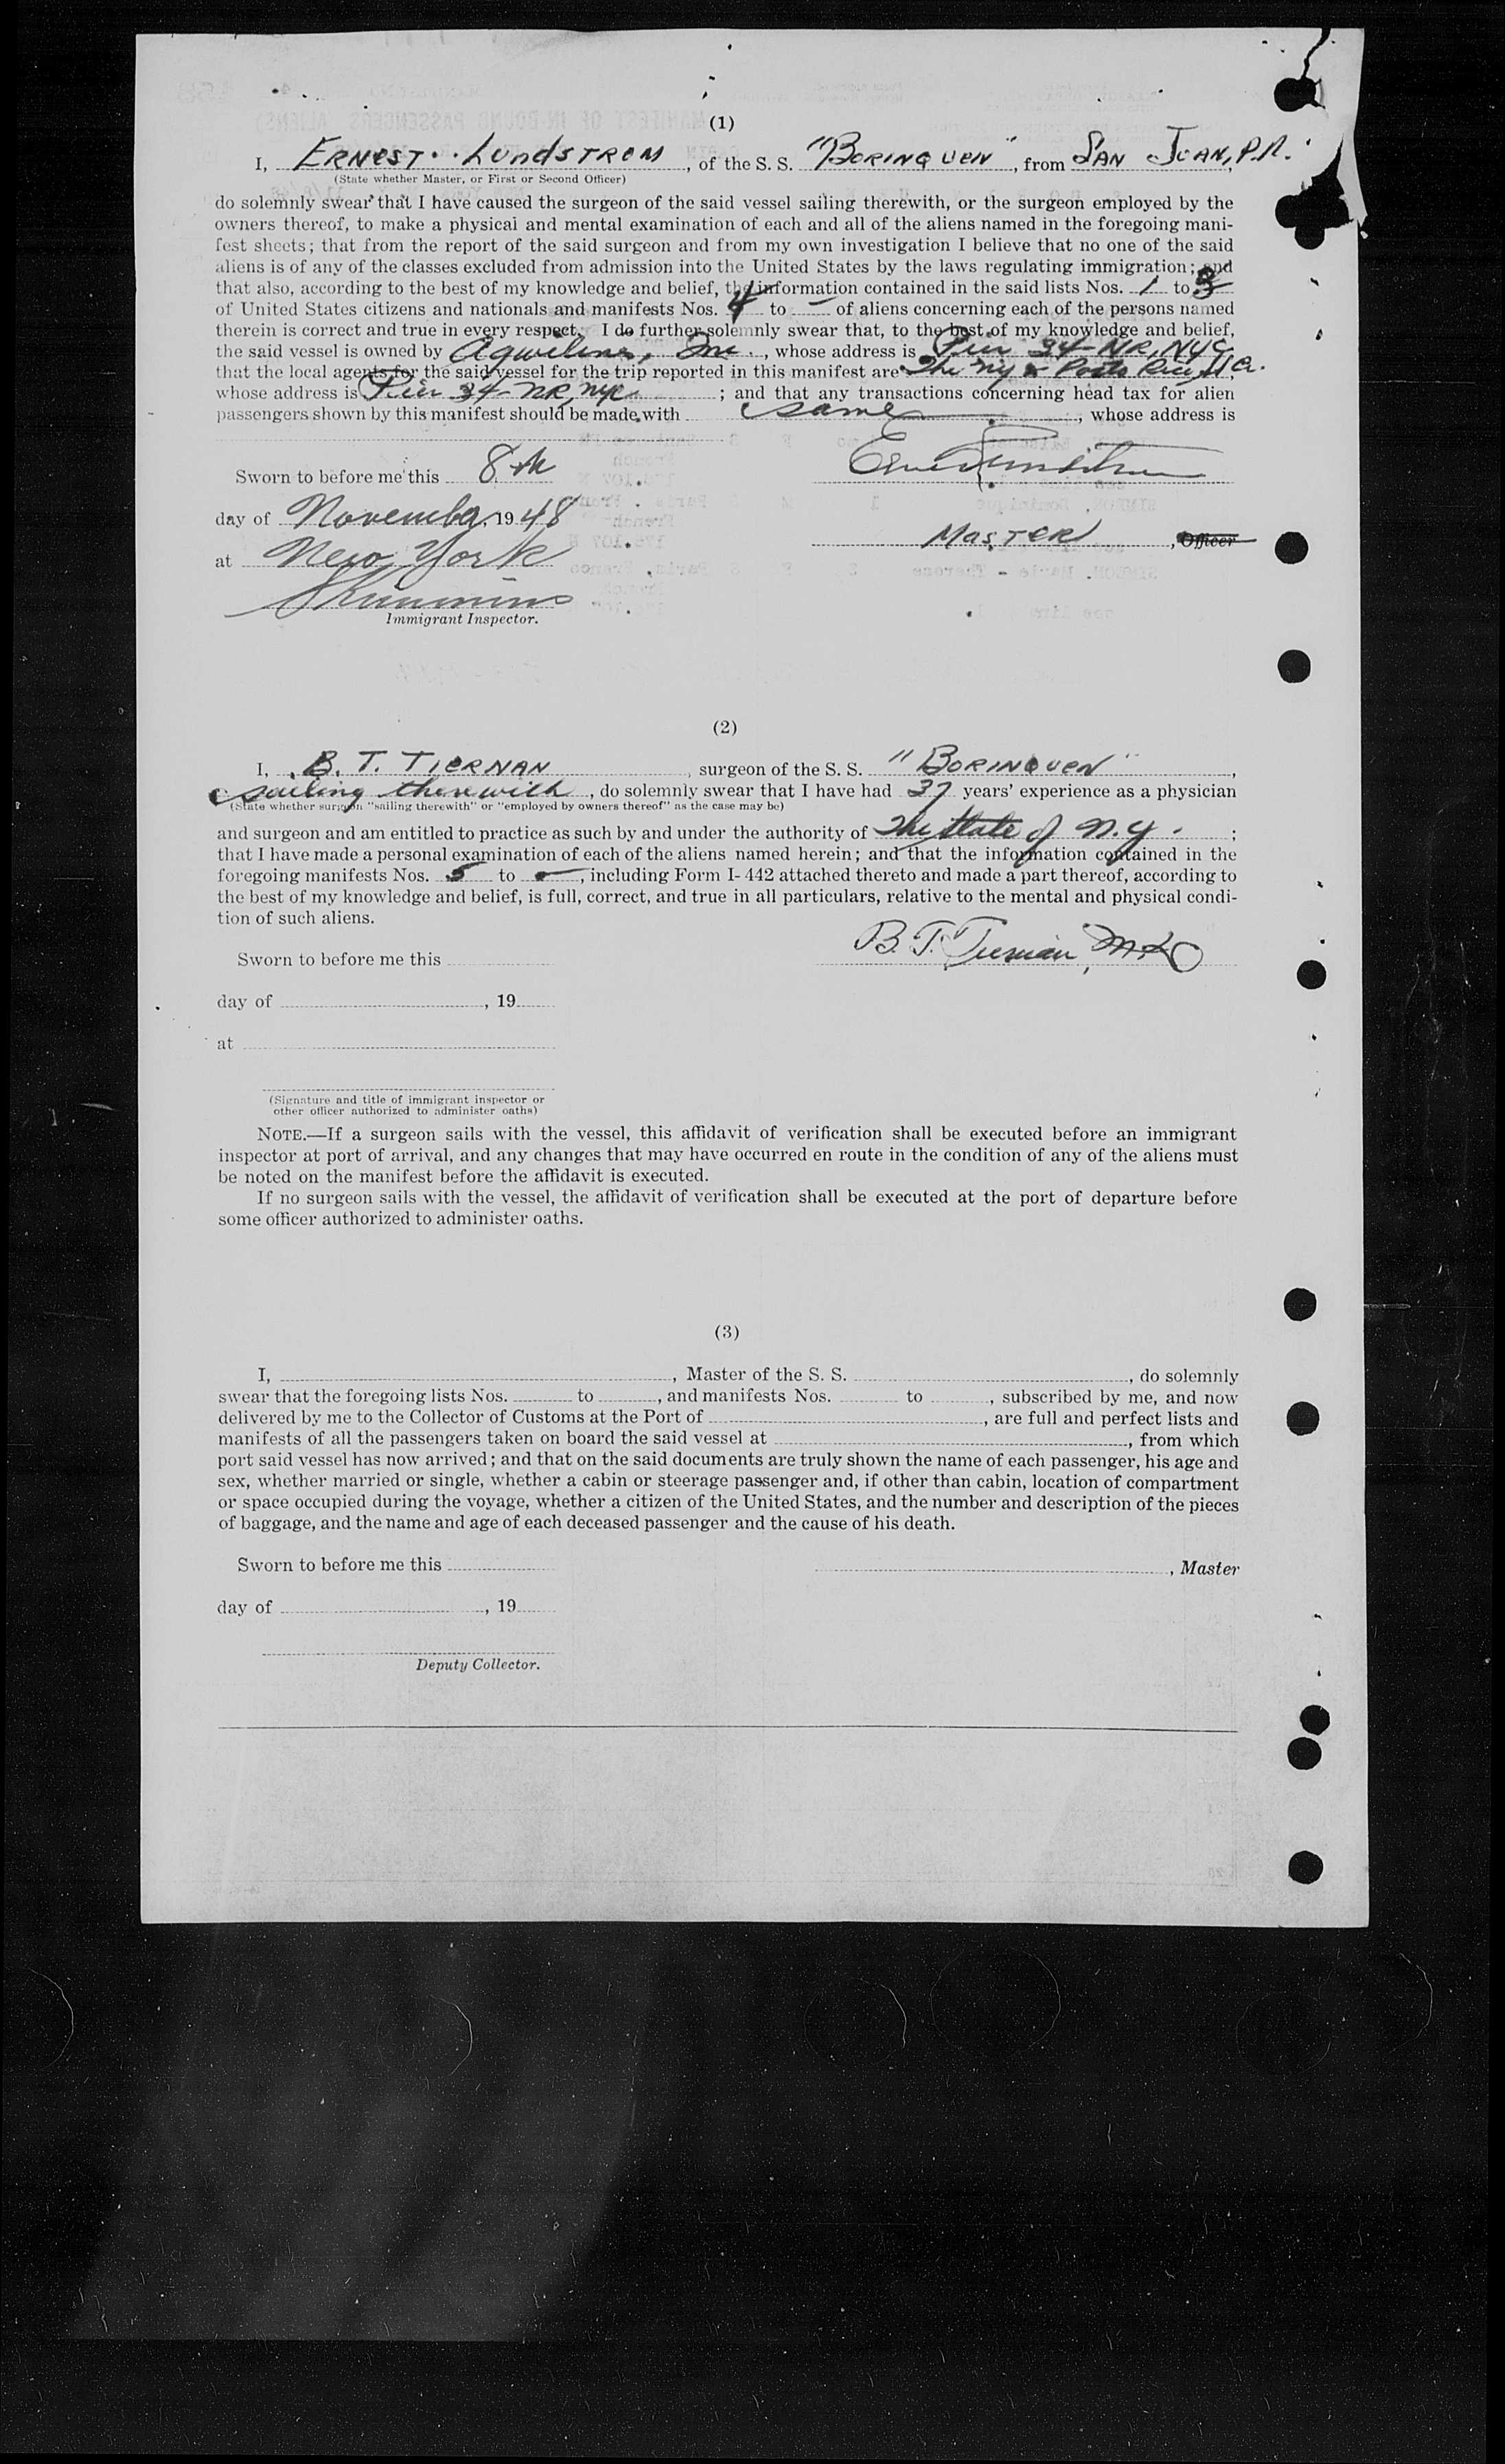 (1)
I, ERNEST LUNDSTROM, of the S. S. "BORINQUEN", from SAN JUAN, P.R.,
(State whether Master, or First or Second Officer)
do solemnly swear that I have caused the surgeon of the said vessel sailing therewith, or the surgeon employed by the
owners thereof, to make a physical and mental examination of each and all of the aliens named in the foregoing mani-
fest sheets; that from the report of the said surgeon and from my own investigation I believe that no one of the said
aliens is of any of the classes excluded from admission into the United States by the laws regulating immigration; and
that also, according to the best of my knowledge and belief, the information contained in the said lists Nos. 1 to 3
of United States citizens and nationals and manifests Nos. 4 to – of aliens concerning each of the persons named
therein is correct and true in every respect. I do further solemnly swear that, to the best of my knowledge and belief,
the said vessel is owned by Agwilines, Inc., whose address is Pier 34-NR, NYC
that the local agents for the said vessel for the trip reported in this manifest are The NY & Porto Rico
whose address is Pier 34-NR, NYC; and that any transactions concerning head tax for alien
passengers shown by this manifest should be made with same, whose address is
Sworn to before me this 8th
day of November, 1948
MASTER, Officer
at New York
Immigrant Inspector.
(2)
I, B. T. TIERNAN, surgeon of the S. S. "BORINQUEN",
sailing therewith, do solemnly swear that I have had 37 years' experience as a physician
(State whether surgeon "sailing therewith" or "employed by owners thereof" as the case may be)
and surgeon and am entitled to practice as such by and under the authority of The State of N.Y.;
that I have made a personal examination of each of the aliens named herein; and that the information contained in the
foregoing manifests Nos. 5 to –, including Form I-442 attached thereto and made a part thereof, according to
the best of my knowledge and belief, is full, correct, and true in all particulars, relative to the mental and physical condi-
tion of such aliens.
B. T. Tiernan, M.D.
Sworn to before me this
day of , 19
at
(Signature and title of immigrant inspector or
other officer authorized to administer oaths)
NOTE.—If a surgeon sails with the vessel, this affidavit of verification shall be executed before an immigrant
inspector at port of arrival, and any changes that may have occurred en route in the condition of any of the aliens must
be noted on the manifest before the affidavit is executed.
If no surgeon sails with the vessel, the affidavit of verification shall be executed at the port of departure before
some officer authorized to administer oaths.
(3)
I, , Master of the S. S. , do solemnly
swear that the foregoing lists Nos. to , and manifests Nos. to , subscribed by me, and now
delivered by me to the Collector of Customs at the Port of , are full and perfect lists and
manifests of all the passengers taken on board the said vessel at , from which
port said vessel has now arrived; and that on the said documents are truly shown the name of each passenger, his age and
sex, whether married or single, whether a cabin or steerage passenger and, if other than cabin, location of compartment
or space occupied during the voyage, whether a citizen of the United States, and the number and description of the pieces
of baggage, and the name and age of each deceased passenger and the cause of his death.
Sworn to before me this
, Master
day of , 19
Deputy Collector.